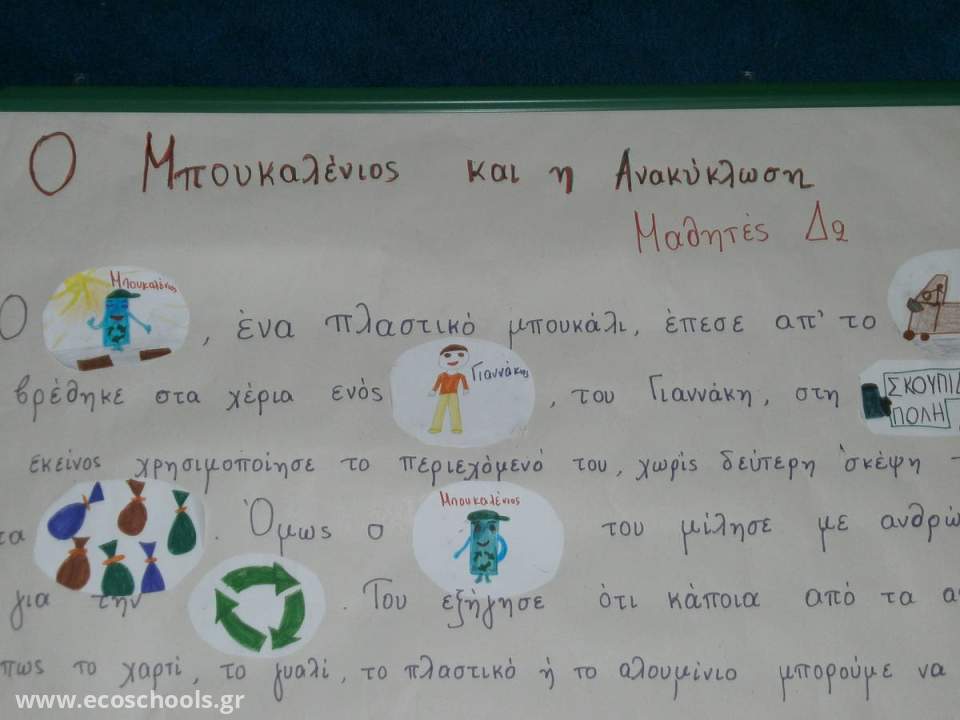 Ο Μπουκαλένιος και η Ανακύκλωση
Μαθητές Δ2
Μπουκαλένιος
Ο , ένα πλαστικό μπουκάλι, έπεσε απ' το
Γιαννάκης
βρέθηκε στα χέρια ενός , του Γιαννάκη, στη
ΣΚΟΥΠΙΔ
ΠΟΛΗ
εκείνος χρησιμοποίησε το περιεχόμενό του, χωρίς δεύτερη σκέψη
Μπουκαλένιος
τα . Όμως ο του μίλησε με ανθρώ
για την . Του εξήγησε ότι κάποια από τα α
πως το χαρτί, το γυαλί, το πλαστικό ή το αλουμίνιο μπορούμε να
www.ecoschools.gr